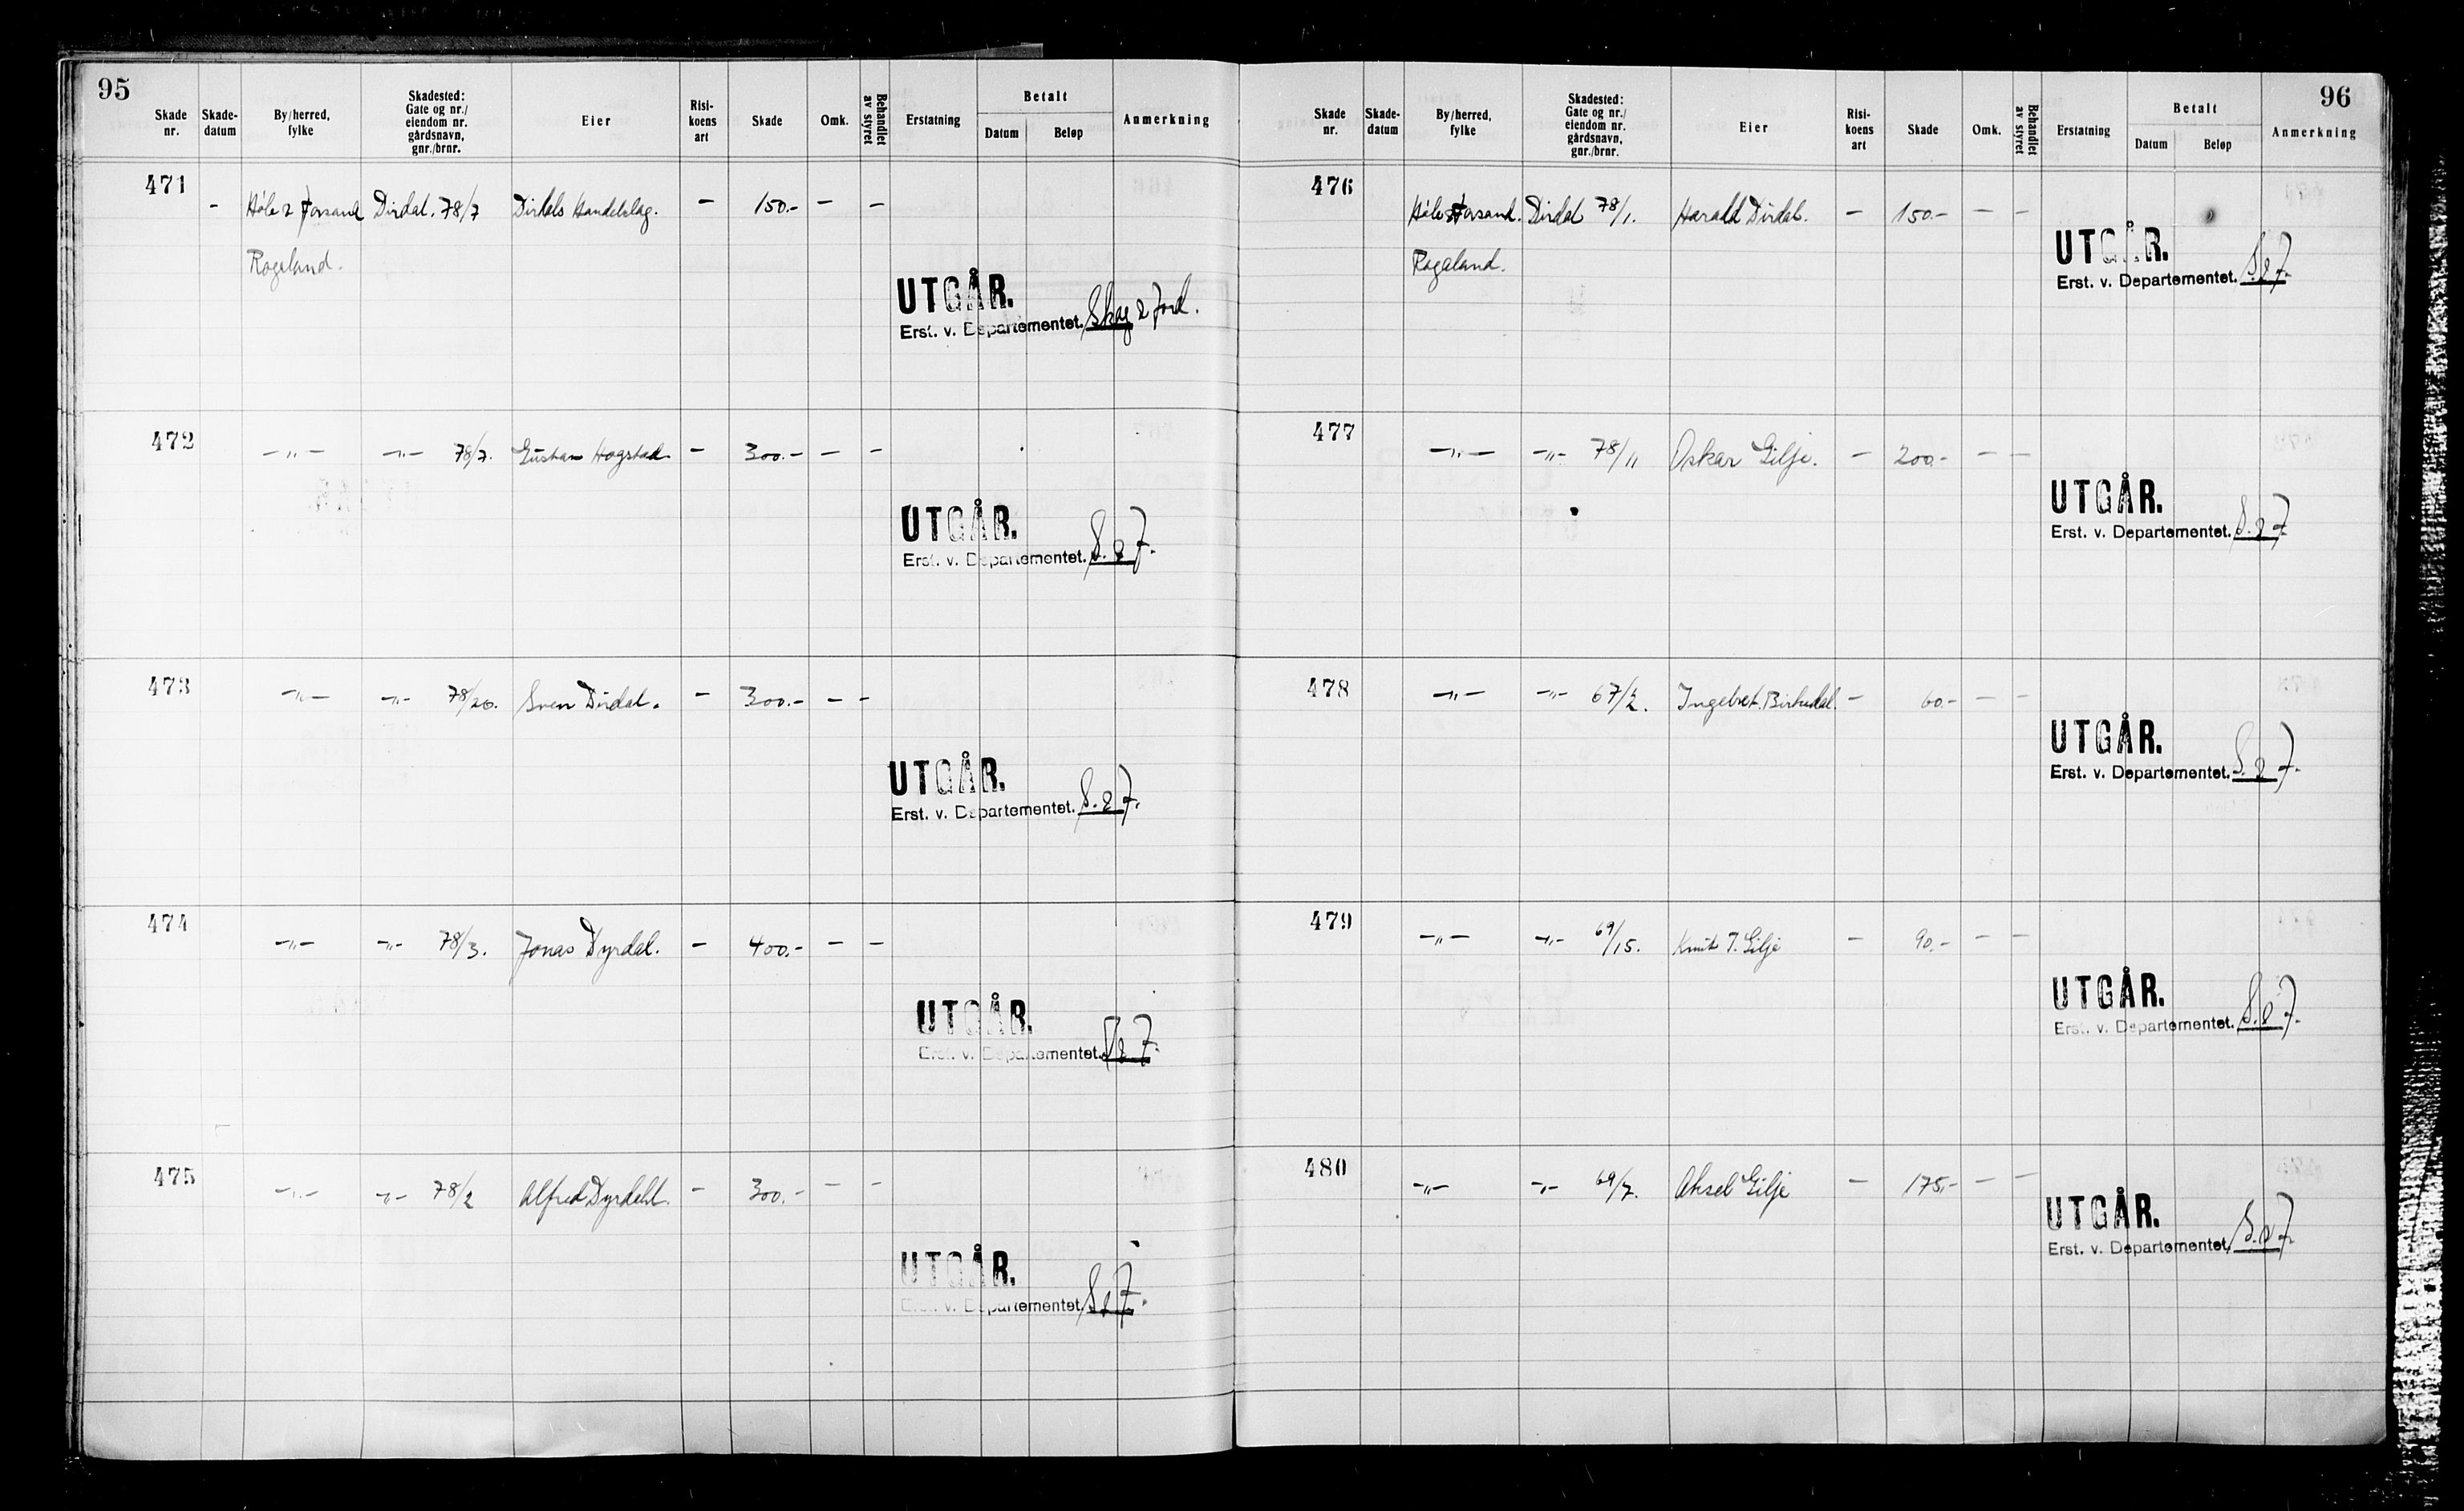 95
Skade nr. Skade-datum By/herred, fylke Skadested: Gate og nr./ eiendom nr. gårdsnavn, gnr./brnr. Eier Risi-koens art Skade Omk. Behandlet av styret Erstatning Betalt Datum Beløp Anmerkning
471
- Høle & Forsand Dirdal. 78/7 Dirdals Handelslag. - 150.- - -
Rogaland.
UTGÅR.
Erst. v. Departementet. Skog & Jord.
472
-"- -"- 78/7. Gustav Hogstad - 300.- - -
UTGÅR.
Erst. v. Departementet. S. & J.
473
-"- -"- 78/20. Sven Dirdal. - 300.- - -
UTGÅR.
Erst. v. Departementet. S. & J.
474
-"- -"- 78/3. Jonas Dyrdal. - 400.- - -
UTGÅR.
Erst. v. Departementet. S & J.
475
-"- -"- 78/2 Alfred Dyrdahl. - 300.- - -
UTGÅR.
Erst. v. Departementet. S & J.
96
Skade nr. Skade-datum By/herred, fylke Skadested: Gate og nr./ eiendom nr. gårdsnavn, gnr./brnr. Eier Risi-koens art Skade Omk. Behandlet av styret Erstatning Betalt Datum Beløp Anmerkning
476
Høle & Forsand. Dirdal 78/1. Harald Dirdal. - 150.- - -
Rogaland.
UTGÅR.
Erst. v. Departementet. S. & J.
477
-"- -"- 78/11 Oskar Gilje. - 200.- - -
UTGÅR.
Erst. v. Departementet. S. & J.
478
-"- -"- 67/2. Ingebret. Birkedal. - 60.- - -
UTGÅR.
Erst. v. Departementet. S. & J.
479
-"- -"- 69/15. Knut T. Gilje - 90.- - -
UTGÅR.
Erst. v. Departementet. S. & J.
480
-"- -"- 69/7. Aksel Gilje - 175.- - -
UTGÅR.
Erst. v. Departementet. S. & J.